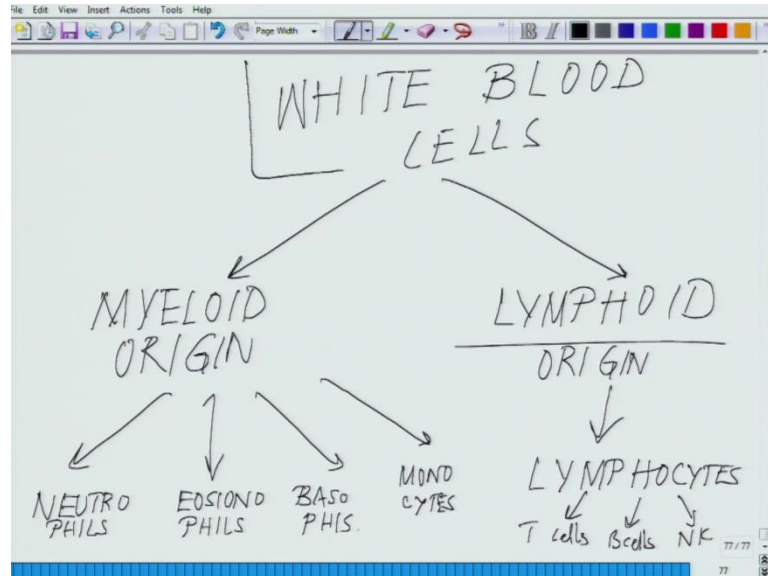 File Edit View Insert Actions Tools Help
Page Width
B I
WHITE BLOOD
CELLS
MYELOID
ORIGIN
LYMPHOID
ORIGIN
NEUTRO
PHILS
EOSIONO
PHILS
BASO
PHIS.
MONO
CYTES
LYMPHOCYTES
T cells B cells NK
77/77
77